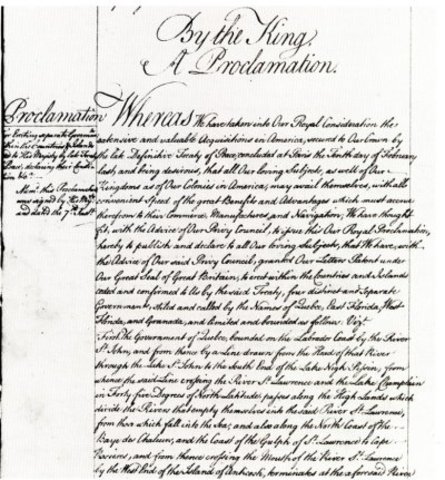 By the King.
A Proclamation.
Proclamation
for Erecting separate Governm.
ed to His Majesty by late Treaty
Mem: this Proclamation
was signed by His Maj.
and dated the 7th Inst.
Whereas We have taken into Our Royal Consideration the
extensive and valuable Acquisitions in America, secured to Our Crown by
the late Definitive Treaty of Peace, concluded at Paris the Tenth day of February
last; and being desirous, that all Our loving Subjects, as well of Our
Kingdoms as of Our Colonies in America, may avail themselves, with all
convenient Speed, of the great Benefits and Advantages which must accrue
therefrom to their Commerce, Manufactures, and Navigation; We have thought
fit, with the Advice of Our Privy Council, to issue this Our Royal Proclamation,
hereby to publish and declare to all Our loving Subjects, that We have, with
the Advice of Our said Privy Council, granted Our Letters Patent under
Our Great Seal of Great Britain, to erect within the Countries and Islands
ceded and confirmed to Us by the said Treaty, four distinct and separate
Governments, stiled and called by the Names of Quebec, East Florida, West
Florida, and Granada, and limited and bounded as follow; Viz.
First the Government of Quebec, bounded on the Labrador Coast by the River
St. John, and from thence by a Line drawn from the Head of that River
through the Lake St. John to the South End of the Lake Nigh Pissin, from
whence the said Line crossing the River St. Lawrence and the Lake Champlain
in Forty five Degrees of North Latitude, passes along the High Lands which
divide the Rivers that empty themselves into the said River St. Lawrence,
from those which fall into the Sea; and also along the North Coast of the
Baye des Chaleurs, and the Coast of the Gulph of St. Lawrence to Cape
Rosiers, and from thence crossing the Mouth of the River St. Lawrence
by the West End of the Island of Anticosti, terminates at the aforesaid River